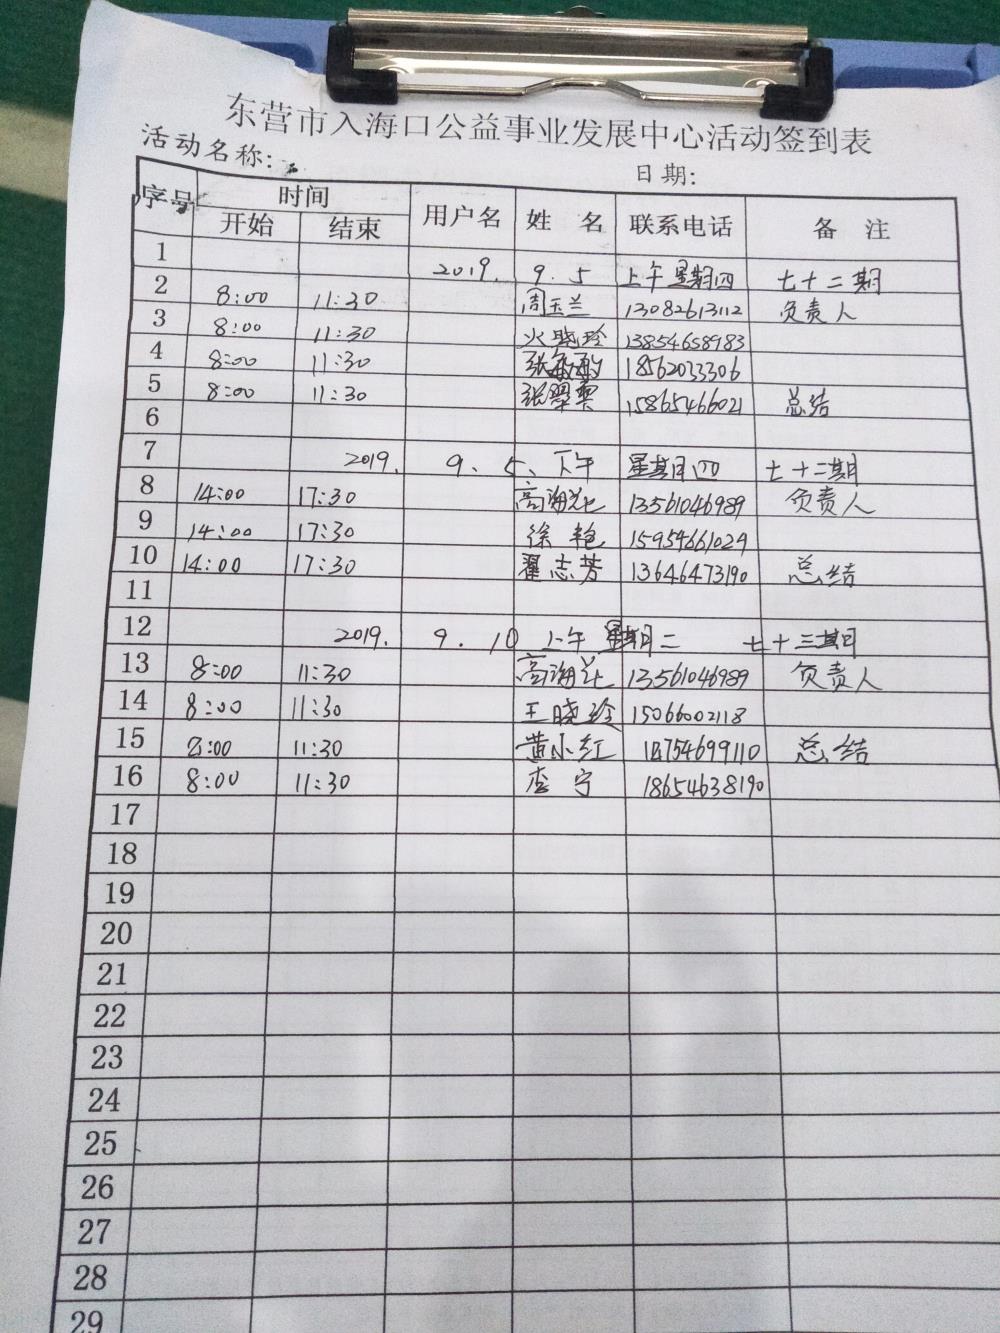 东营市入海口公益事业发展中心活动签到表
活动名称:
日期:
序号 时间 用户名 姓 名 联系电话 备 注
开始 结束
1 2019. 9. 5 上午 星期四 七十二期
2 8:00 11:30 周玉兰 13082613112 负责人
3 8:00 11:30 火晓玲 13854658983
4 8:00 11:30 张敏 18562033306
5 8:00 11:30 张翠 15865466021 总结
6
7 2019. 9. 5、下午 星期四 七十二期
8 14:00 17:30 高海花 13561046989 负责人
9 14:00 17:30 徐艳 15954661029
10 14:00 17:30 翟志芳 13646473190 总结
11
12 2019. 9. 10 上午 星期二 七十三期
13 8:00 11:30 高海花 13561046989 负责人
14 8:00 11:30 王晓玲 15066002118
15 8:00 11:30 黄小红 754699110 总结
16 8:00 11:30 李宁 18654638190
17
18
19
20
21
22
23
24
25
26
27
28
29